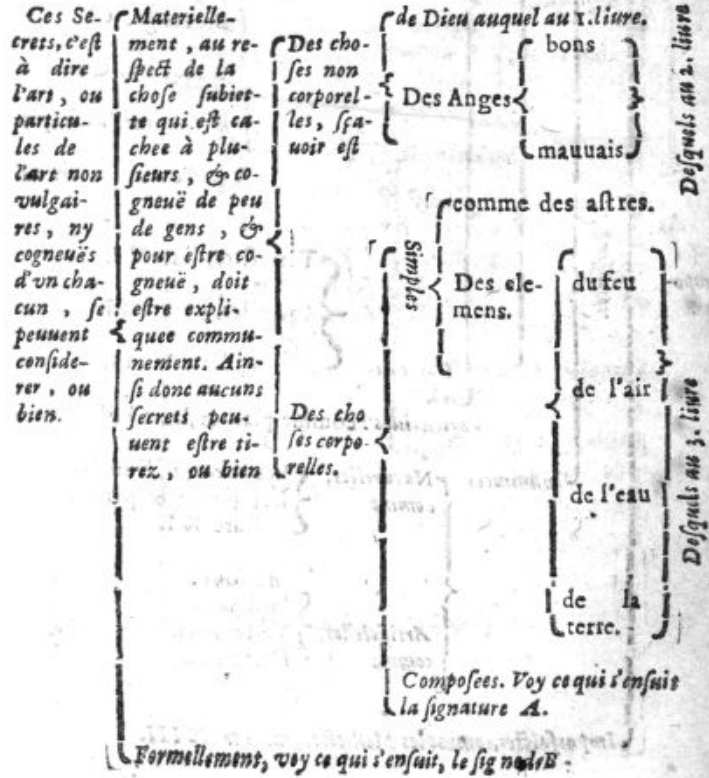 Ces Se-
crets, c'eſt
à dire
l'art, ou
particu-
les de
l'art non
vulgai-
res, ny
cogneuës
d'vn cha-
cun, ſe
peuuent
conſide-
rer, ou
bien.
Materielle-
ment, au re-
ſpect de la
choſe ſubiet-
te qui eſt ca-
chee à plu-
ſieurs, & co-
gneuë de peu
de gens, &
pour eſtre co-
gneuë, doit
eſtre expli-
quee commu-
nement. Ain-
ſi donc aucuns
ſecrets peu-
uent eſtre ti-
rez, ou bien
Des cho-
ſes non
corporel-
les, ſça-
uoir eſt
de Dieu auquel au 1. liure.
Des Anges
bons
mauuais
Deſquels au 2. liure
Des cho
ſes corpo-
relles.
Simples
comme des aſtres.
Des ele-
mens.
du feu
de l'air
de l'eau
de la
terre.
Deſquels au 3. liure
Compoſees. Voy ce qui s'enſuit
la ſignature A.
Formellement, voy ce qui s'enſuit, le ſigne de B.